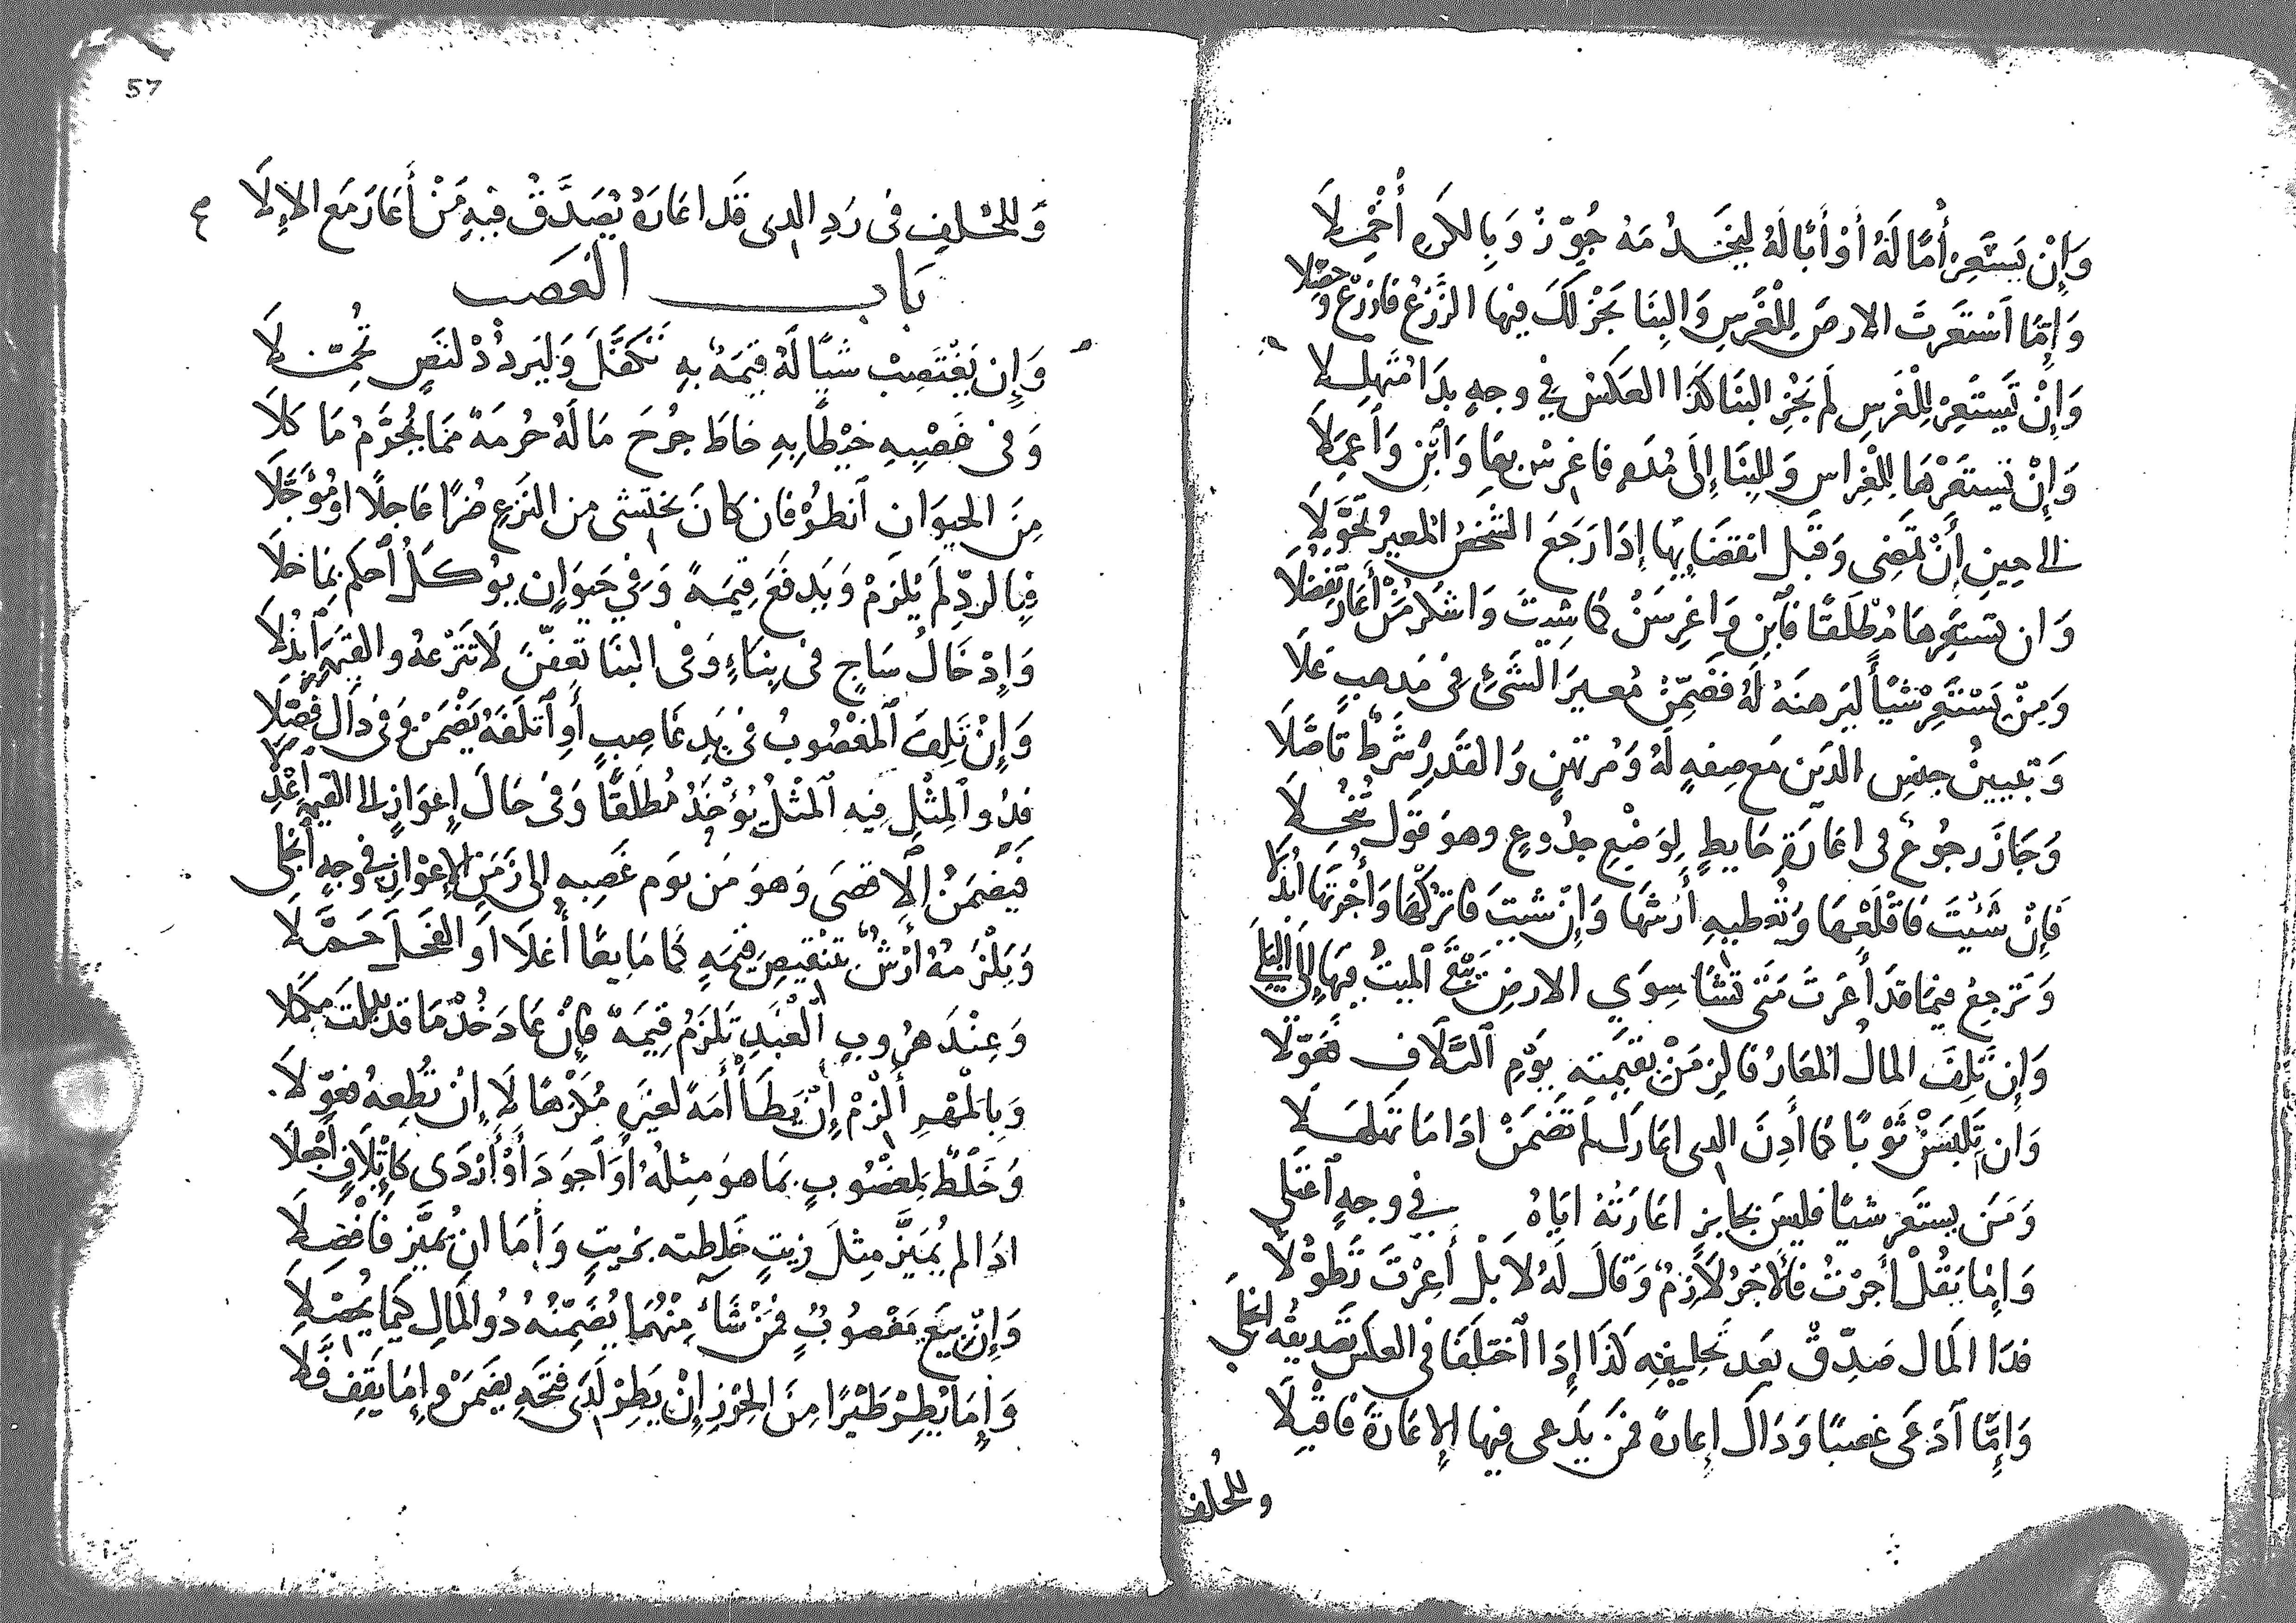 وَإِنْ يَسْتَعِرْ أُمًّا لَهُ أَوْ أَبًا لَهُ لِيَخْدُمَهُ جُوِّزْ وَبِالكَرهِ أُخْمِلَا
وَإِمَّا اَسْتَعَرْتَ الارضَ لِلْغَرْسِ وَالبِنَا يَجُزْ لَكَ فِيْهَا الزَّرْعُ فَازْرَعْ وَحَصِّلا
وَإِنْ تَسْتَعِرْ لِلْغَرسِ لَم يَجُزِ البِنَا كَذَا العَكسُ فِي وجهٍ بَدَا مُتَهَلِّلا
وَإِنْ تَستَعِرْهَا لِلْغِراسِ وَلِلبِنَا إِلَى مُدَةٍ فَاغرِسْ بِهَا وَابْنِ وَاَعمَلَا
الى حِينِ أَنْ تَمضِى وَقَبلَ انقِضَايِهَا إِذَا رَجَعَ الشَّخصُ المُعِيرُ تَحَوَّلَا
وَان تستَعِرهَا مُطْلَقًا فَابْنِ وَاغرِسَنْ كَمَا شِيتَ وَاشكُر مَنْ أَعَارَ تَفَضُّلَا
وَمِنْ يَسْتَعِرْ شَيًأ لِيَرهنَهُ لَهُ فَضَمِّنْ مُعِيرَ الشَّىْءِ فِى مَذهبٍ عَلَا
وَتبيينُ جنسِ الدَينِ مَع صِفَهٍ لَهُ وَمُرتَهَنٍ وَالقَدرِ شَرطٌ تَاصَّلَا
وَجَازَ رجُوعٌ فى اعَارَةِ حَايطٍ لِوَضْعِ جِذُوعٍ وهوَ قَول تُنُخِّلَا
فَإِنْ شَيْتَ فَاقْلَعْهَا وَتُعطيهِ أَرْشَهَا وَإِنْ شيتَ فَاتْرُكْهَا وَأُجْرَتَهَا ابْذُلَا
وَتَرجِعُ فيمَا قد أَعَرتَ مَتَى تَشَا سِوَي الارضِ يَبْقَى المَيتُ فِيهَا إِلَى البِلَى
وَإِن تَلِفَ المَالُ المُعَارُ فَالزِمَنْ بِقيمَتِهِ يَوْمِ التَّلَافِ مُعَوِّلَا
وَان تَلبَسَنْ ثَوْبًا كَمَا أَذِنَ الذى اعَارَكَ لَم تَضمَنْ اذَا مَا تَهَلهَلَا
وَمَن يستَعِر شيًا فليسَ بجَايزٍ اعَارَتُهُ ايَاهُ فِي وجهٍ اَعتَلى
وَإِمَّا يَقُلْ أَجرْتُ فَالأَجْرُ لَازِمٌ وَقَالَ لَهُ لَا بَلْ أَعِرْتَ تَطَوُّلَا
فذَا المَال صَدِّقْ بَعدَ تَحلِيفِهِ كَذَا إِذَا اختَلَفَا فى العكسِ تَصديقُه انجَلَى
وَإِمَّا اَدَّعَى غصبًا وَذَاكَ إِعارةً فَمَن يَدعى فيهَا الإعَارَةَ فَاقْبِلَا
وللخلف
57
وَلِلخُلفِ فى رَدِ الذى قَد اعَارَهُ يُصَدَّقُ فيهِ مَنْ أَعَارَ مَع الإِلَا
بَاب الغَصب
وَإِن يَغْتَصِبْ شَيًا لَهُ قِيمَةٌ بِهِ تَكَفَّلَ وَليَردُدْ لنَصٍ تُحُمِّلَا
وَفى غَصْبِهِ خَيْطًا بِهِ خاطَ جرحَ مَا لَهُ حُرمَةٌ ممَا يُحَرَّمُ مَا كَلَا
مِنَ الحَيوَانِ انظُرْ فَان كَانَ يختَشى مِن النَزعِ ضُرًا عَاجِلًا اوْ مُؤَجَّلَا
فَبِالردِّ لَم يُلزَمْ وَيَدفَعَ قيمَةً وَفِي حَيوَانٍ يوكَلُ احكم بمَا خلَا
وَإِدْخَالُ سَاجٍ فى بِنَاءٍ وَفى البنَا تعَفَّنَ لَا تَنزعْهُ والقيمَةَ ابْذُلَا
وَإِنْ تَلِفَ المَغْصُوبُ فى يَدِ غَاصِبٍ أَوِ اتلَفَهُ يَضْمَنْ وَفى ذَاكَ فُصِّلَا
فذُو المِثْلِ فِيهِ المثْلُ يُؤْخَذُ مُطلَقًا وَفى حَالِ إِعوَازٍ الى القيمَةِ اعْدِلَا
فَيَضمَنُ الاَقصَى وَهوَ مَن يَوم غَصبِهِ إِلى زَمَنِ الإِعْوَازِ فى وجهٍ انجَلى
وَيَلْزمُهُ أَرْشٌ بتَنْقيصِ قيمَهٍ كَمَا مَايعًا أَغلَا اَو الفَحلَ حَمَّلَا
وَعِنْدَ هرُوبِ العْبَدِ تَلزَمُ قِيمَهٌ فإِنْ عَادَ خُذْ مَا قد بذلتَ مكَمَّلا
وَبِالمَهْرِ أَلزمْ إِنْ يَطَأْ أَمَةً لغَيرِهِ مُكرَهًا لَا إِنْ تُطِعهُ فعَوِّلَا
وَخَلْطٌ بمغصُوبٍ بمَا هوَ مِثلُهُ اَو اجوَدَ أَوْ أَرْدَى كَإِتْلَافٍ اجْعلَا
اذَا لم يُمَيَّزْ مِثلَ زيتٍ خَلطته بزيتٍ وَأَمَا انْ يُمَيَّز فَافصِلَا
وَإِنْ بِيعَ مَغْصُوبٌ فَمَنْ شَاءَ مِنْهُمَا يُضَمِّنُهُ ذُو المَالِ كيمَا يُحصِّلَا
وَإِمَا يُطِرْ طَيْرًا مِنَ الحِرْزِ إِنْ يَطِرْ لَدَى فَتحِهِ يَضمَنْ وإِمَا يَقِفْ فَلَا